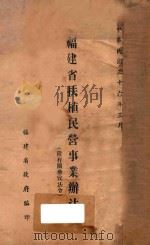 中華民國三十六年三月
福建省扶植民營事業辦法
(附有關法令)
福建省政府編印